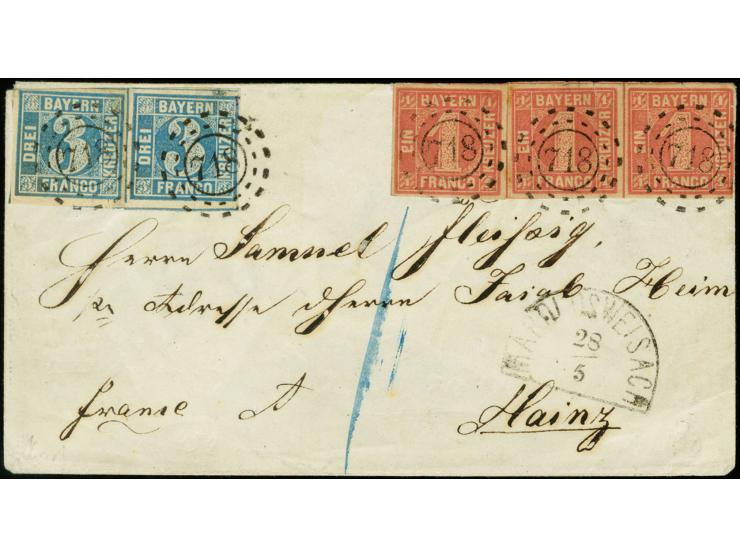 BAYERN BAYERN
DREI 3 KREUZER DREI 3
FRANCO FRANCO
718
BAYERN BAYERN BAYERN
1 1 1 1
EIN 1 KREUZER EIN 1 KREUZER EIN 1 KREUZER
FRANCO FRANCO FRANCO
718 718 718
Herrn Samuel Fleißig,
Adresse Herrn Jaiab Heim
franco Mainz
28
5